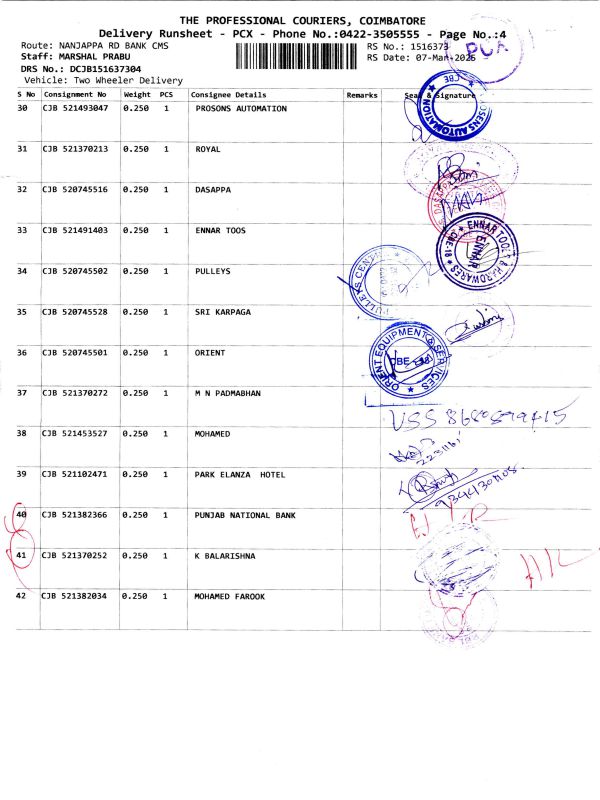 THE PROFESSIONAL COURIERS, COIMBATORE
Delivery Runsheet - PCX - Phone No.:0422-3505555 - Page No.:4
Route: NANJAPPA RD BANK CMS
RS No.: 1516373
PCX
Staff: MARSHAL PRABU
RS Date: 07-Mar-2025
DRS No.: DCJB151637304
Vehicle: Two Wheeler Delivery
S No Consignment No Weight PCS Consignee Details Remarks Seal & Signature
30 CJB 521493047 0.250 1 PROSONS AUTOMATION
CBE
AUTOMATION
31 CJB 521370213 0.250 1 ROYAL
32 CJB 520745516 0.250 1 DASAPPA
DASAPPA
33 CJB 521491403 0.250 1 ENNAR TOOS
ENNAR TOOLS & HARDWARES
CBE-18
ENNAR
34 CJB 520745502 0.250 1 PULLEYS
PULLEYS
35 CJB 520745528 0.250 1 SRI KARPAGA
36 CJB 520745501 0.250 1 ORIENT
ORIENT EQUIPMENT & SERVICES
CBE
37 CJB 521370272 0.250 1 M N PADMABHAN
38 CJB 521453527 0.250 1 MOHAMED
39 CJB 521102471 0.250 1 PARK ELANZA HOTEL
40 CJB 521382366 0.250 1 PUNJAB NATIONAL BANK
41 CJB 521370252 0.250 1 K BALARISHNA
42 CJB 521382034 0.250 1 MOHAMED FAROOK